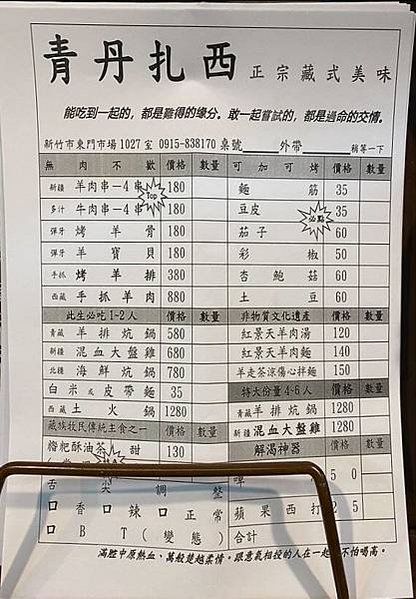 青丹扎西 正宗藏式美味
能吃到一起的，都是難得的緣分。敢一起嘗試的，都是過命的交情。
新竹市東門市場1027室 0915-838170 桌號 外帶 稍等一下
無肉不歡 價格 數量 可加可烤 價格 數量
新疆 羊肉串-4串 Top 180 麵筋 35
多汁 牛肉串-4串 180 豆皮 必點 35
彈牙 烤羊骨 180 茄子 60
彈牙 羊寶貝 180 彩椒 50
手抓 烤羊排 380 杏鮑菇 60
西藏 手抓羊肉 880 土豆 60
此生必吃1~2人 價格 數量 非物質文化遺產 價格 數量
青藏 羊排炕鍋 580 紅景天羊肉湯 120
新疆 混血大盤雞 680 紅景天羊肉麵 140
北疆 海鮮炕鍋 780 羊走茶涼傷心拌麵 150
白米或皮帶麵 35 特大份量4-6人 價格 數量
西藏 土火鍋 1280 青藏羊排炕鍋 1280
藏族牧民傳統主食之一 價格 數量 新疆混血大盤雞 1280
糌粑酥油茶 甜 130 解渴神器 價格 數量
舌尖調整 啤 50
口香口辣口正常 蘋果西打 25
口BT(變態) 合計
滿腔中原熱血、萬般楚越柔情。跟意氣相投的人在一起 不怕喝高。